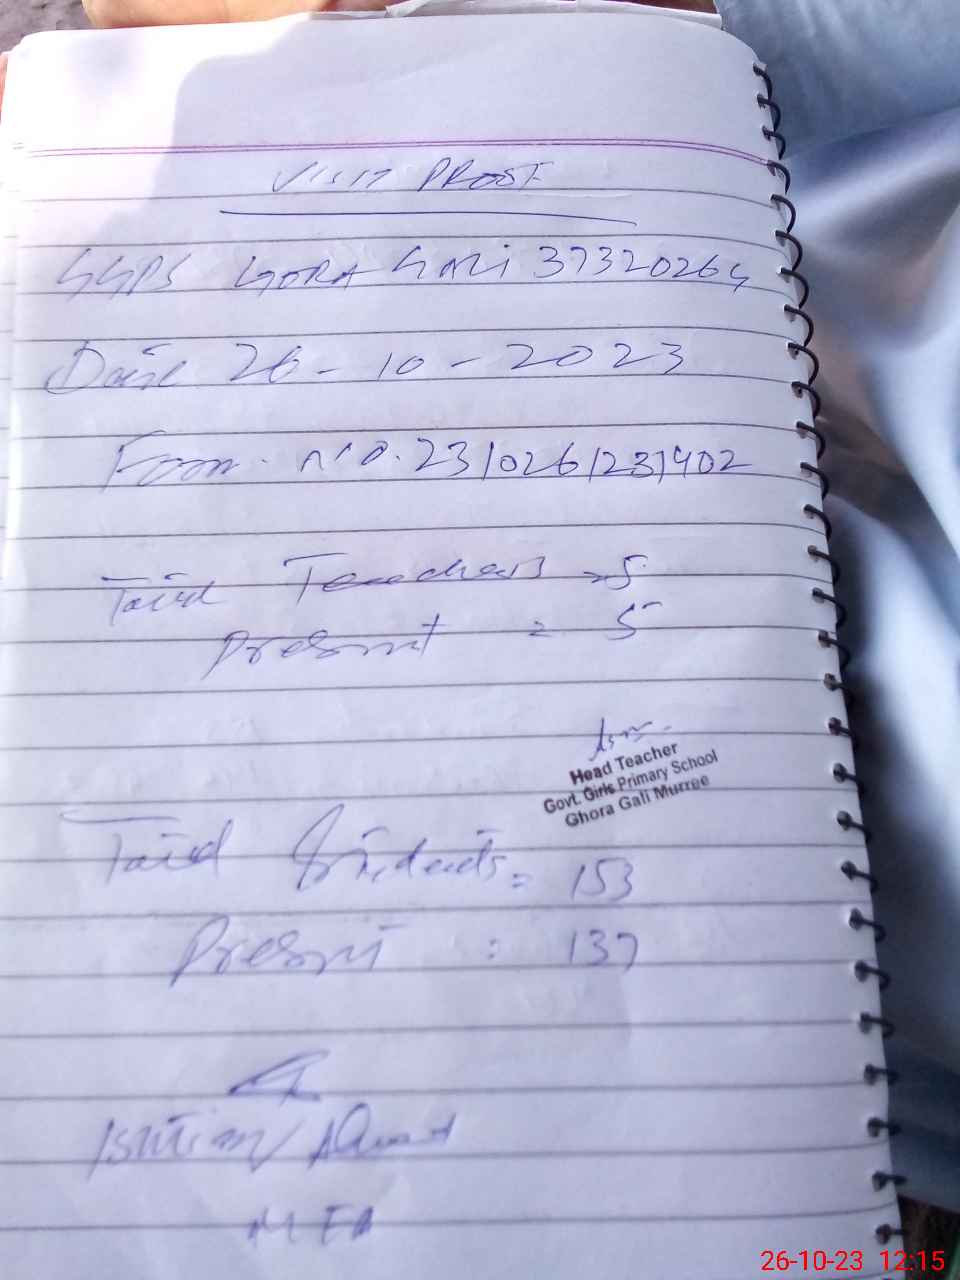 VISIT PROOF
GGPS GORA GALI 37320264
Date 26-10-2023
Form no. 2310261231402
Total Teachers = 5
Present = 5
Head Teacher
Govt. Girls Primary School
Ghora Gali Murree
Total Students = 153
Present : 137
Ahmad
MEA
26-10-23 12:15